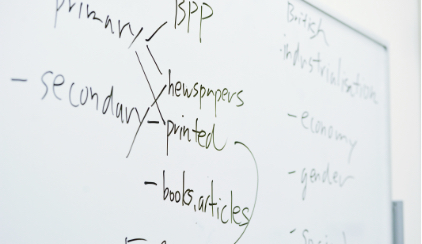 primary
BPP
newspapers
- secondary
- printed
- books, articles
British
industrialisation
- economy
- gender